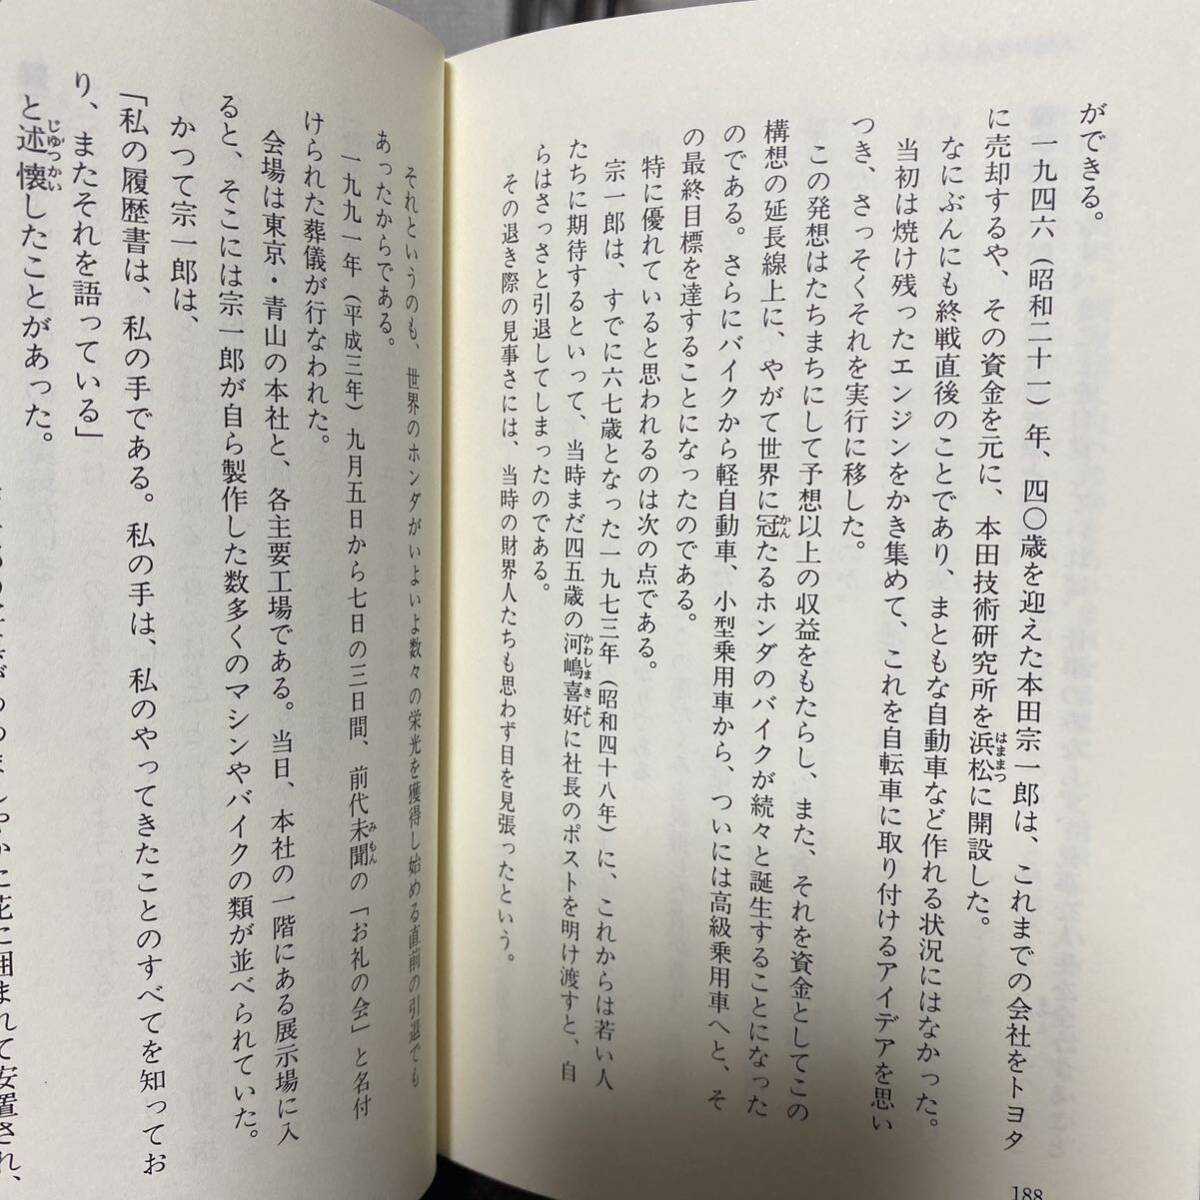 ができる。
一九四六(昭和二十一)年、四〇歳を迎えた本田宗一郎は、これまでの会社をトヨタ
に売却するや、その資金を元に、本田技術研究所を浜松に開設した。
はままつ
なにぶんにも終戦直後のことであり、まともな自動車など作れる状況にはなかった。
当初は焼け残ったエンジンをかき集めて、これを自転車に取り付けるアイデアを思い
つき、さっそくそれを実行に移した。
この発想はたちまちにして予想以上の収益をもたらし、また、それを資金としてこの
構想の延長線上に、やがて世界に冠たるホンダのバイクが続々と誕生することになった
かん
のである。さらにバイクから軽自動車、小型乗用車から、ついには高級乗用車へと、そ
の最終目標を達することになったのである。
特に優れていると思われるのは次の点である。
宗一郎は、すでに六七歳となった一九七三年(昭和四十八年)に、これからは若い人
たちに期待するといって、当時まだ四五歳の河嶋喜好に社長のポストを明け渡すと、自
かわしまきよし
らはさっさと引退してしまったのである。
その退き際の見事さには、当時の財界人たちも思わず目を見張ったという。
188
それというのも、世界のホンダがいよいよ数々の栄光を獲得し始める直前の引退でも
あったからである。
一九九一年(平成三年)九月五日から七日の三日間、前代未聞の「お礼の会」と名付
みもん
けられた葬儀が行なわれた。
会場は東京・青山の本社と、各主要工場である。当日、本社の一階にある展示場に入
ると、そこには宗一郎が自ら製作した数多くのマシンやバイクの類が並べられていた。
かつて宗一郎は、
「私の履歴書は、私の手である。私の手は、私のやってきたことのすべてを知ってお
り、またそれを語っている」
と述懐したことがあった。
じゅつかい
花に囲まれて安置され、